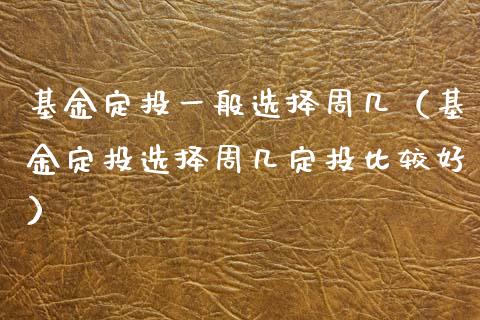 基金定投一般选择周几（基
金定投选择周几定投比较好
）